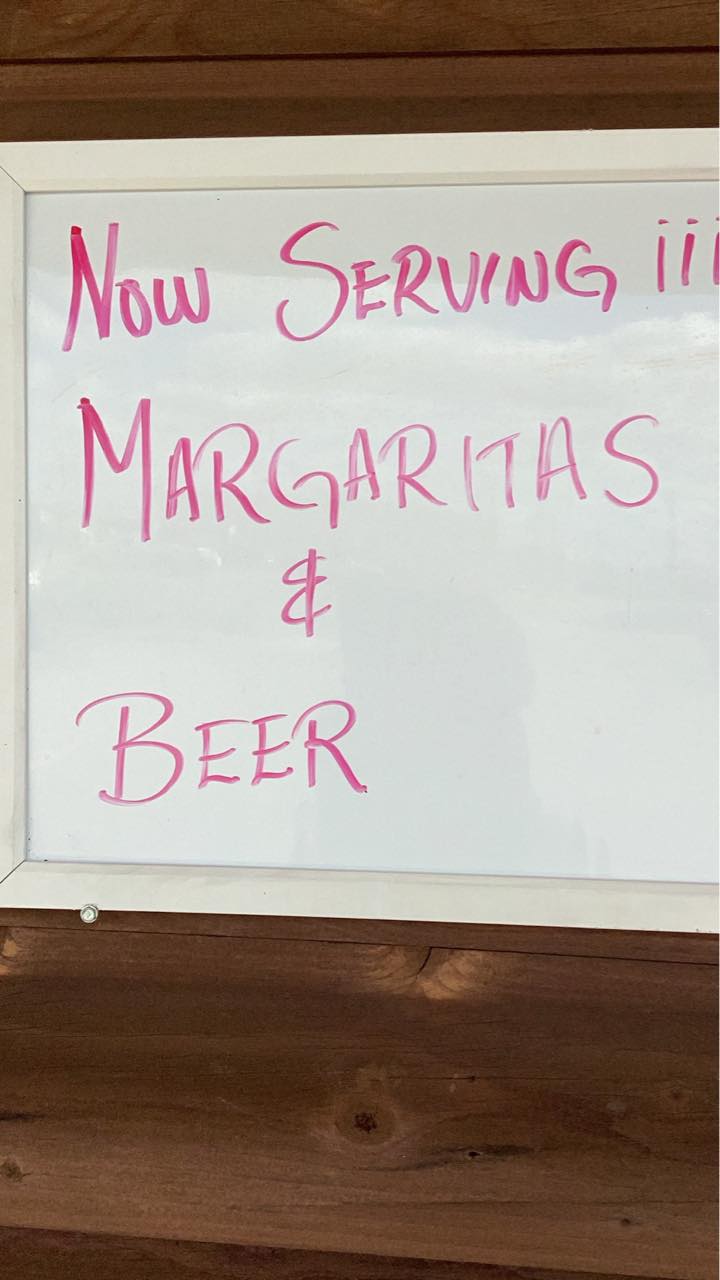 NOW SERVING ¡¡¡
MARGARITAS
&
BEER